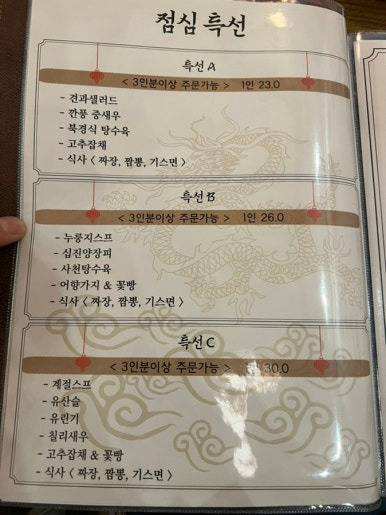 점심 특선
특선 A
< 3인분이상 주문가능 > 1인 23.0
- 견과샐러드
- 깐풍 중새우
- 북경식 탕수육
- 고추잡채
- 식사 < 짜장, 짬뽕, 기스면 >
특선 B
< 3인분이상 주문가능 > 1인 26.0
- 누룽지스프
- 십진양장피
- 사천탕수육
- 어향가지 & 꽃빵
- 식사 < 짜장, 짬뽕, 기스면 >
특선 C
< 3인분이상 주문가능 > 30.0
- 계절스프
- 유산슬
- 유린기
- 칠리새우
- 고추잡채 & 꽃빵
- 식사 < 짜장, 짬뽕, 기스면 >